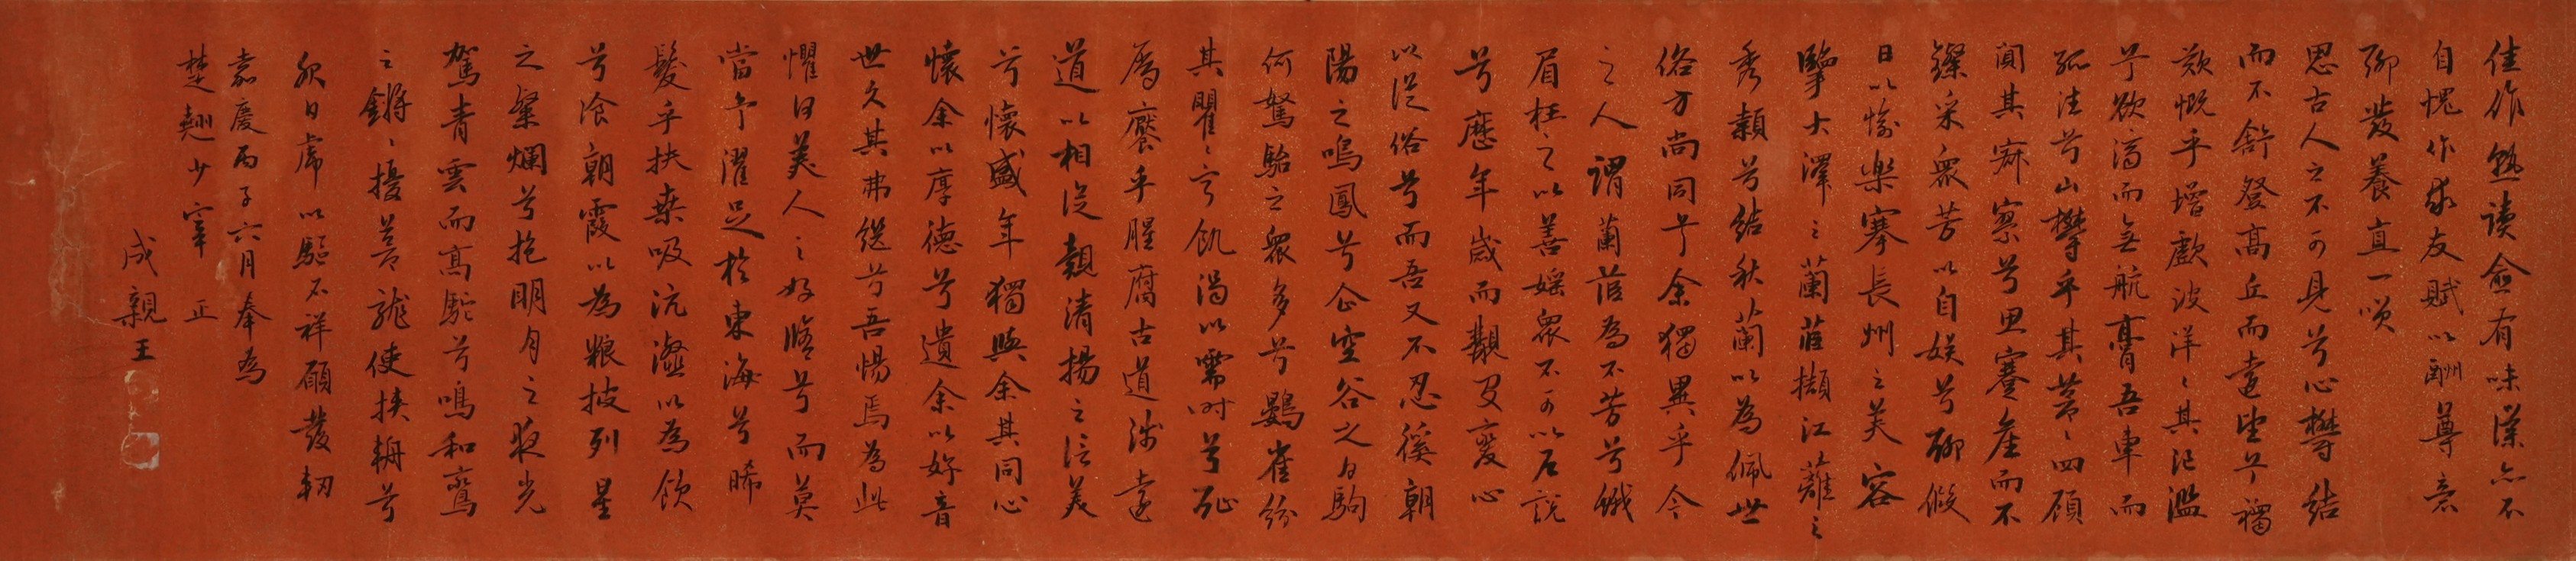 佳作熟读愈有味漢亦不
自愧作求友賦以酬尊意
聊發養直一噗
思古人之不可見兮心欝結
而不舒登髙丘而遠望兮獨
欷慨乎增歔波洋〻其汜濫
兮欲濟而無航膏吾車而
孤往兮山欝乎其蒼〻四顧
闃其寂寥兮思蹇產而不
鑠采衆芳以自娱兮聊假
日以愉樂搴長州之芙容
擥大澤之蘭茝擷江蘺之
秀穎兮結秋蘭以為佩世
俗方尚同兮余獨異乎今
之人謂蘭茝為不芳兮幟
眉枉之以善婬衆不可以戶說
兮歷年歲而觏叟變心
以從俗兮而吾又不忍徯朝
陽之鳴鳳兮企空谷之白駒
何駑駘之衆多兮鷃雀紛
其瞿〻寧飢渴以需時兮耻
爲饜乎腥腐古道渺遠
道以相從覿清揚之信美
兮懷盛年獨與余其同心
懷余以厚德兮遺余以好音
世久其弗继兮吾惕焉為此
懼曰美人之好脩兮而莫
當兮濯足於東海兮晞
髮乎扶桑吸沆瀣以為飲
兮飡朝霞以為粮披列星
之粲爛兮抱明月之夜光
駕青雲而髙駝兮鳴和鸞
之鏘〻擾蒼龍使挟輈兮
服白虎以驅不祥願發軔
嘉慶丙子六月奉為
楚翹少宰 正
成親王